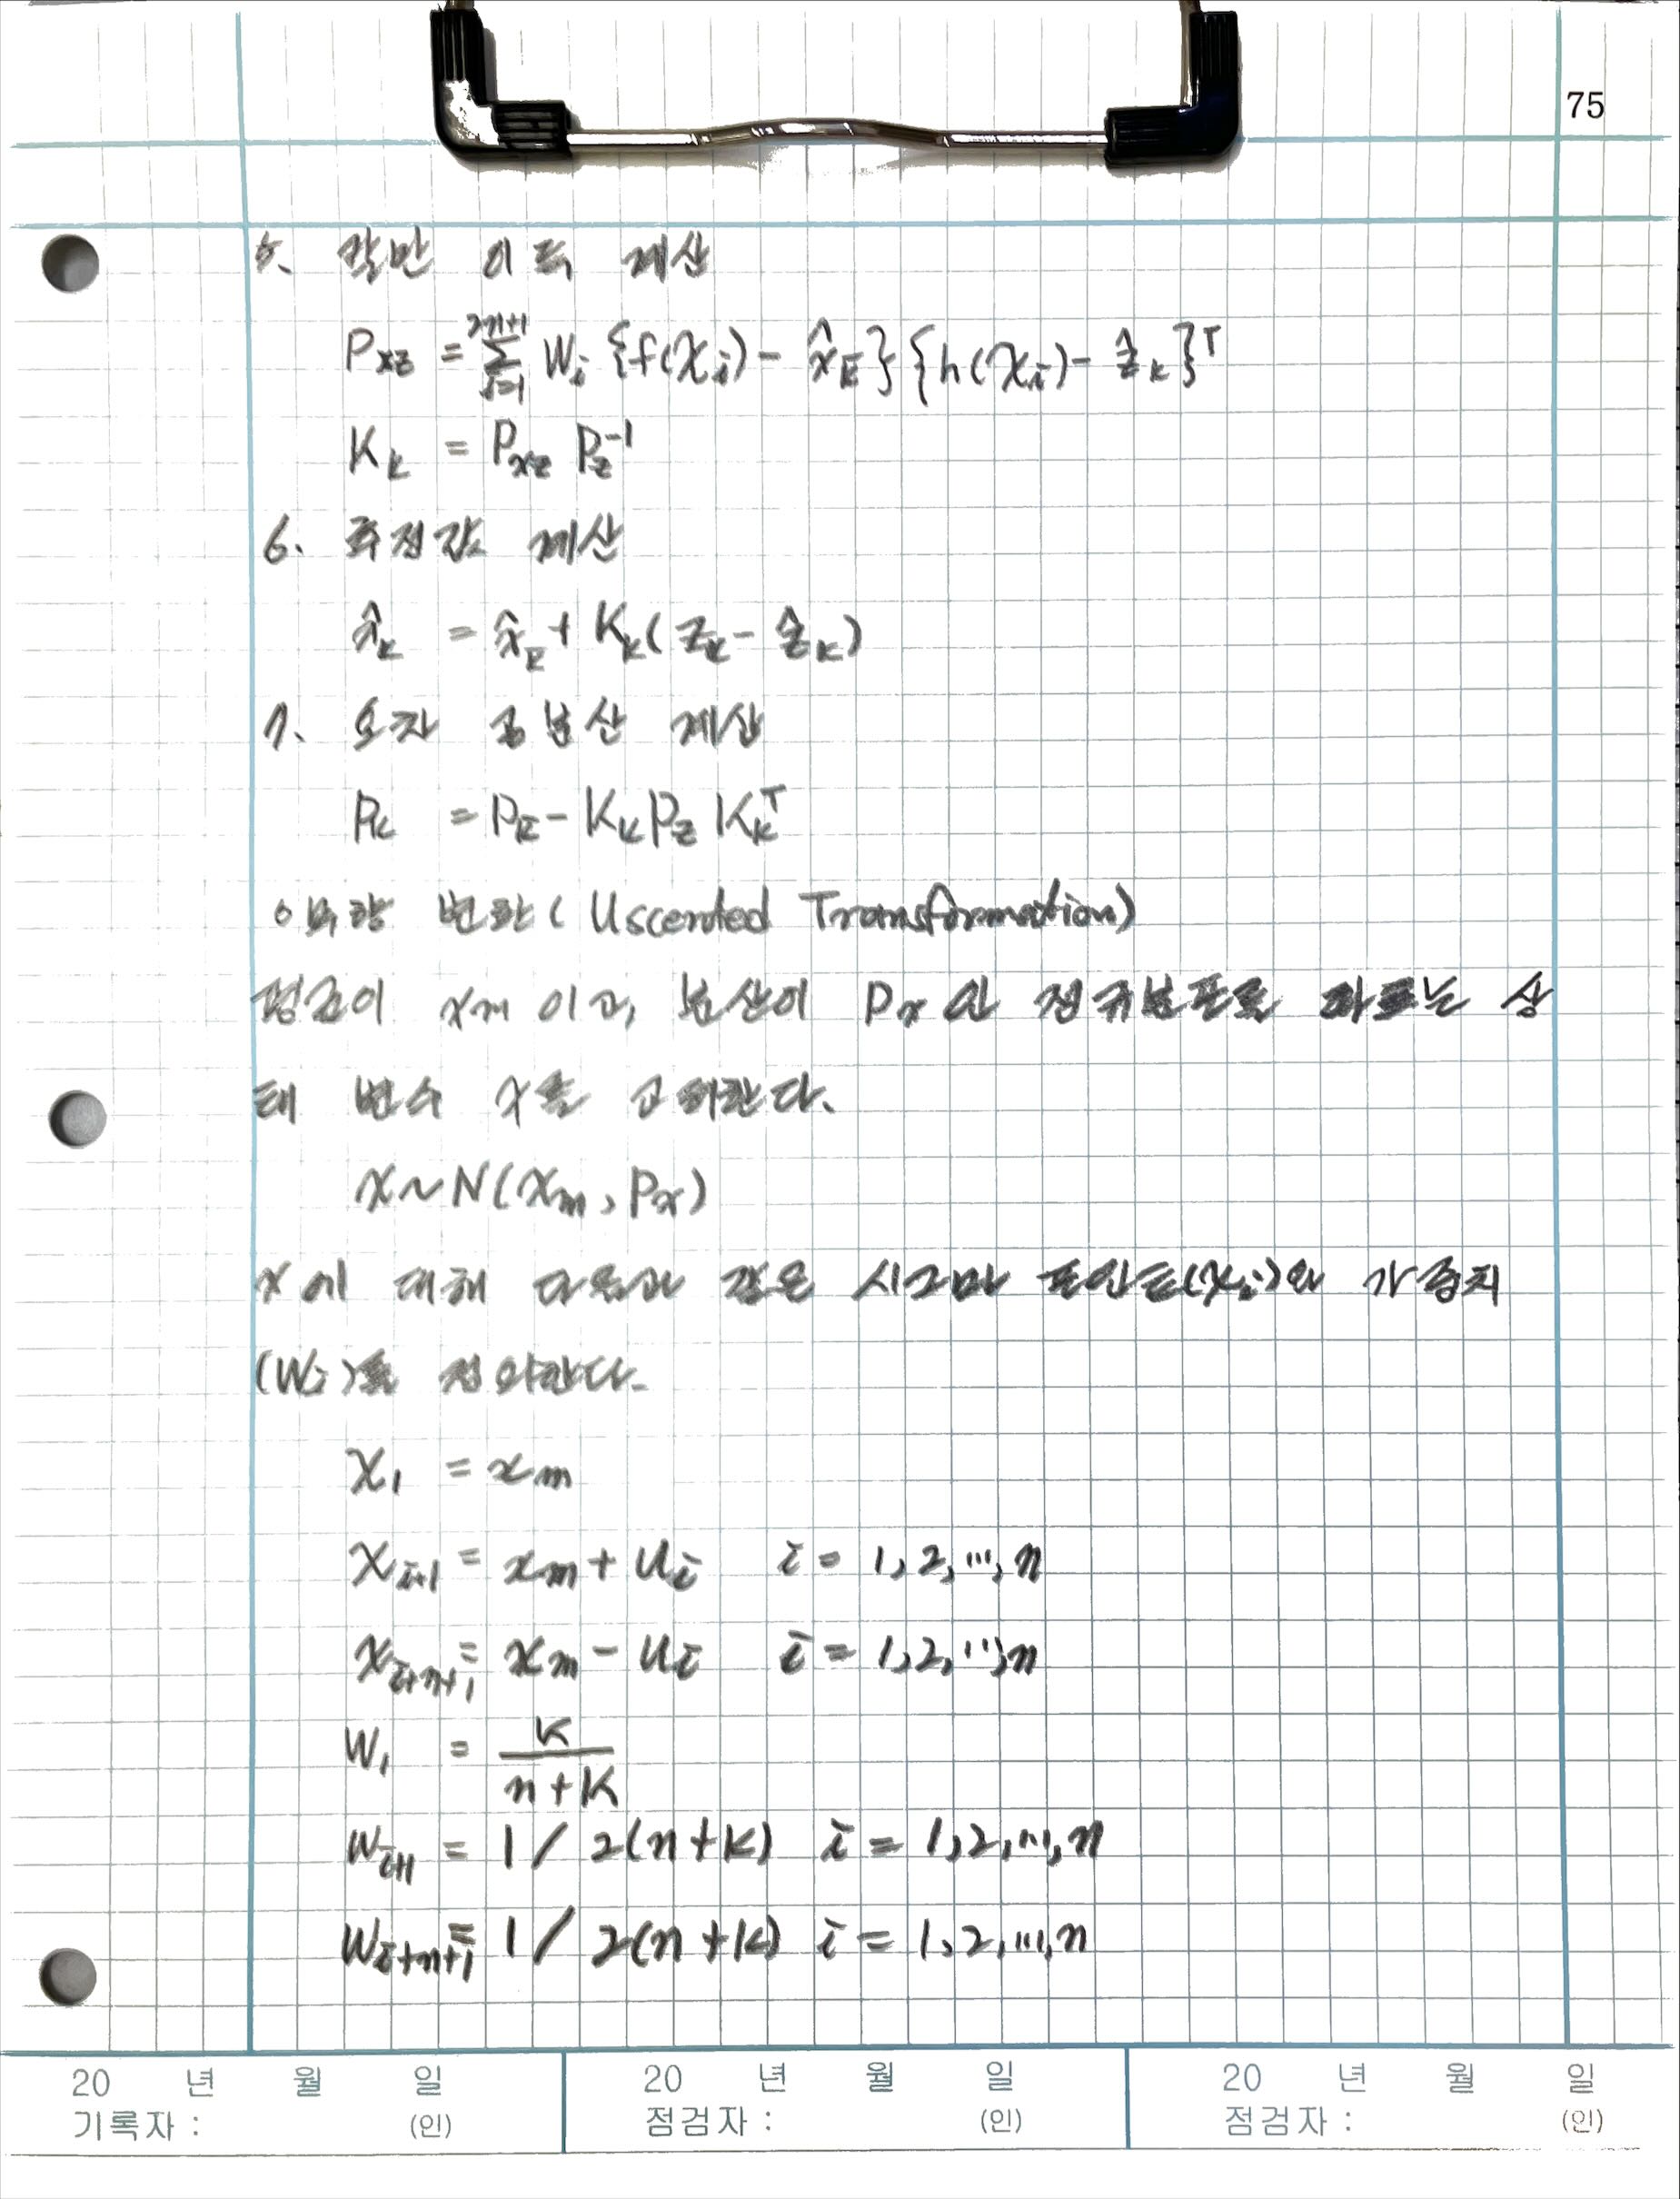 75
5. 칼만 이득 계산
Pxz = Σ(i=1→2n+1) Wi {f(χi) - x̂k̄} {h(χi) - ẑk}ᵀ
Kk = Pxz Pz⁻¹
6. 추정값 계산
x̂k = x̂k̄ + Kk(zk - ẑk)
7. 오차 공분산 계산
Pk = Pk̄ - Kk Pz Kkᵀ
○ 무향 변환 (Uscented Transformation)
평균이 xm이고, 분산이 Px인 정규분포를 따르는 상
태 변수 x를 고려한다.
x ~ N(xm, Px)
x에 대해 다음과 같은 시그마 포인트(χi)와 가중치
(Wi)를 정의한다.
χ1 = xm
χi+1 = xm + ui i = 1, 2, ..., n
χi+n+1 = xm - ui i = 1, 2, ..., n
W1 = k / n + k
Wi+1 = 1 / 2(n + k) i = 1, 2, ..., n
Wi+n+1 = 1 / 2(n + k) i = 1, 2, ..., n
20 년 월 일 20 년 월 일 20 년 월 일
기록자 : (인) 점검자 : (인) 점검자 : (인)